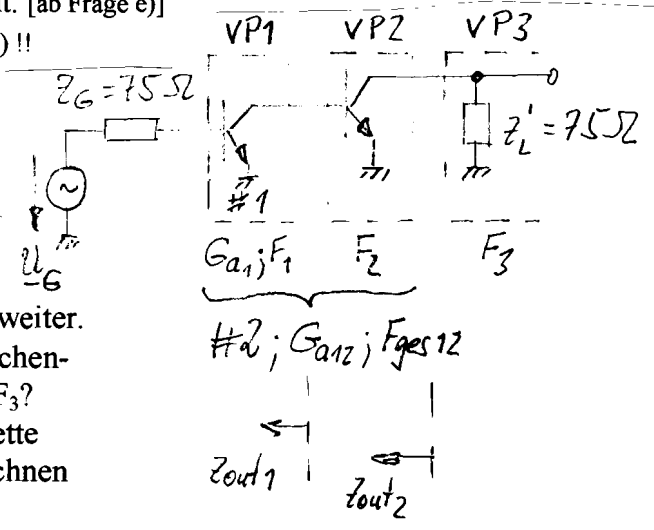 t. [ab Frage e)]
) !!
VP1 VP2 VP3
Z_G = 75 Ω
~
U_G
#1
Z_L' = 75 Ω
G_a1; F_1 F_2 F_3
weiter.
chen-
F₃?
ette
chnen
#2; G_a12; F_ges12
Z_out1
Z_out2